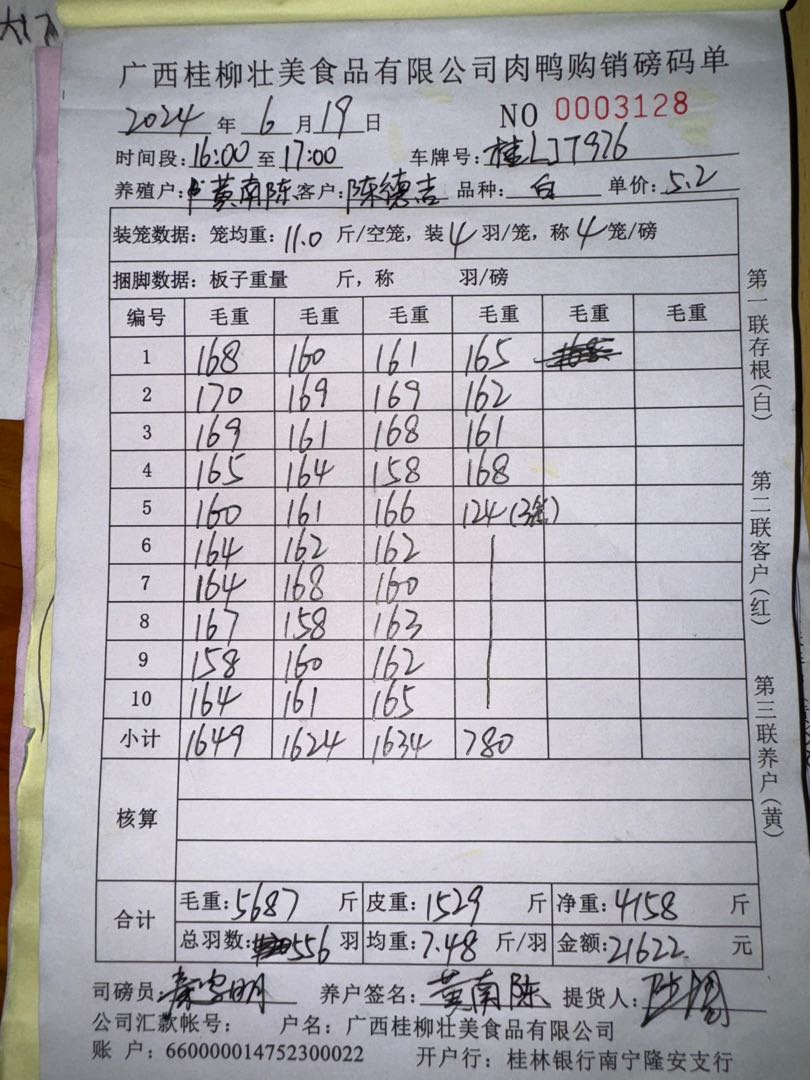 广西桂柳壮美食品有限公司肉鸭购销磅码单
2024年6月19日 NO 0003128
时间段:16:00至17:00 车牌号:桂LJT926
养殖户:黄南陈 客户:陈德吉 品种:白 单价:5.2
装笼数据:笼均重:11.0斤/空笼,装4羽/笼,称4笼/磅
捆脚数据:板子重量 斤,称 羽/磅
编号 毛重 毛重 毛重 毛重 毛重 毛重
1 168 160 161 165
2 170 169 169 162
3 169 161 168 161
4 165 164 158 168
5 160 161 166 124(3笼)
6 164 162 162
7 164 168 160
8 167 158 163
9 158 160 162
10 164 161 165
小计 1649 1624 1634 780
核算
合计 毛重:5687斤 皮重:1529斤 净重:4158斤
总羽数:556羽 均重:7.48斤/羽 金额:21622元
司磅员: 养户签名:黄南陈 提货人:
公司汇款帐号: 户名:广西桂柳壮美食品有限公司
账 户:660000014752300022 开户行:桂林银行南宁隆安支行
第一联存根(白)
第二联客户(红)
第三联养户(黄)